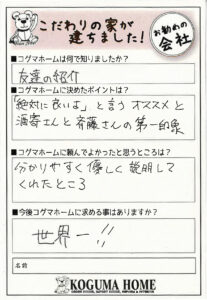 こだわりの家が
建ちました!
お勧めの
会社
■コグマホームは何で知りましたか?
友達の紹介
■コグマホームに決めたポイントは?
「絶対に良いよ」と言うオススメと
濱寄さんと斉藤さんの第一印象
■コグマホームに頼んでよかったと思うところは?
分かりやすく優しく説明して
くれたところ
■今後コグマホームに求める事はありますか?
世界一!!
名前
KOGUMA HOME